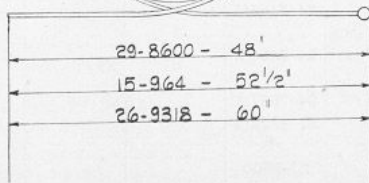 29-8600 - 48'
15-964 - 52 1/2"
26-9318 - 60"